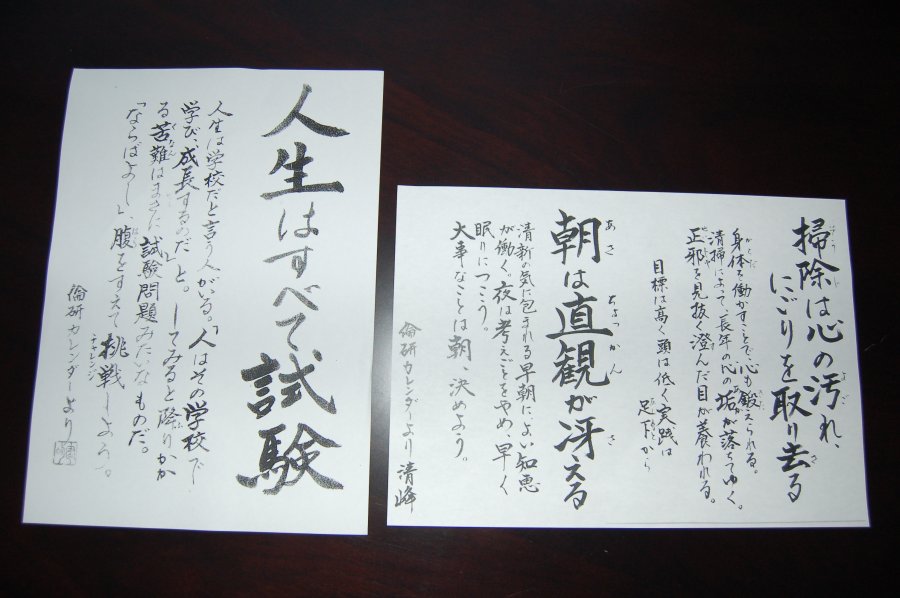 人生はすべて試験
人生は学校だと言う人がいる。「人はその学校で
学び、成長するのだ」と。してみると降りかか
る苦難はまさに試験問題みたいなものだ。
「ならばよし」、腹をすえて挑戦しよう。
倫研カレンダーより
掃除は心の汚れ、
にごりを取り去る
身体を働かすことで心も鍛えられる。
清掃によって、長年の心の垢が落ちてゆく。
正邪を見抜く澄んだ目が養われる。
目標は高く頭は低く実践は
足下から
朝は直観が冴える
清新の気に包まれる早朝に、よい知恵
が働く。夜は考えごとをやめ、早く
眠りにつこう。
大事なことは朝、決めよう。
倫研カレンダーより 清峰